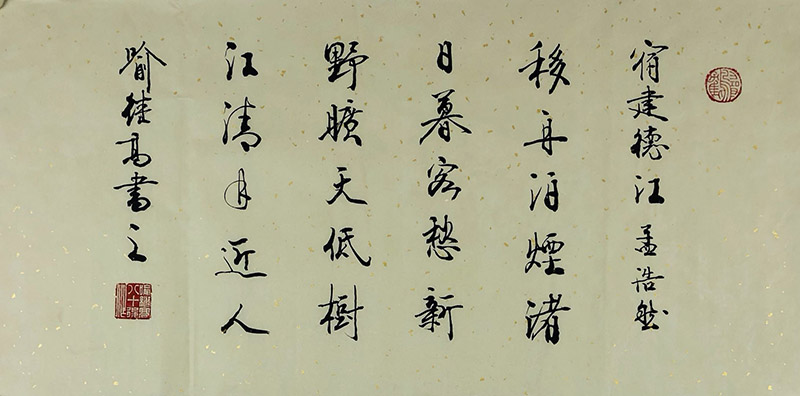 宿建德江 孟浩然
移舟泊煙渚
日暮客愁新
野曠天低樹
江清月近人
喻继高書之